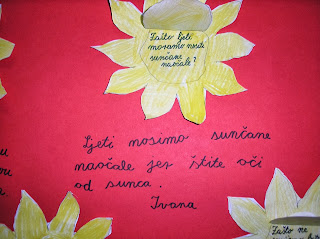 Zašto ljeti
moramo nositi
sunčane
naočale?
Ljeti nosimo sunčane
naočale jer štite oči
od sunca.
Ivana
Zašto ne